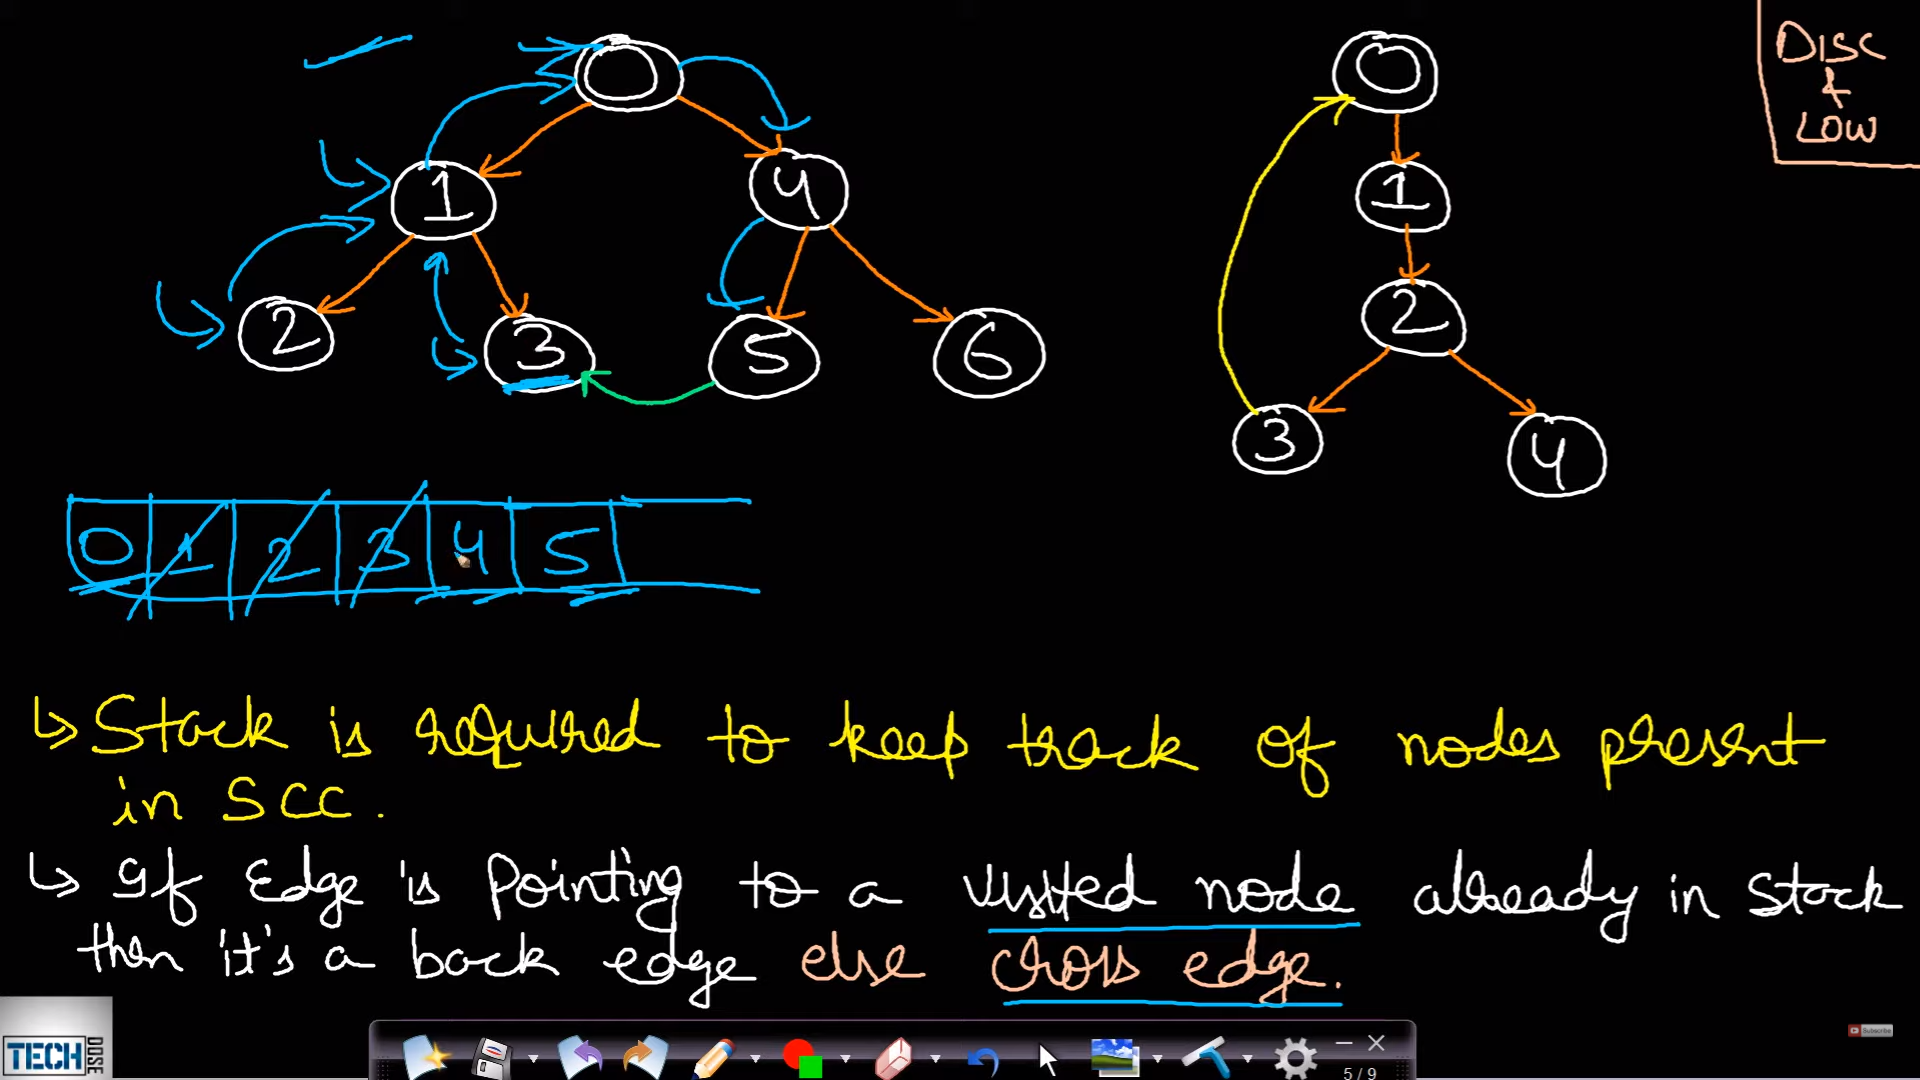 0
0
DISC
&
LOW
1
4
1
2
3
5
6
2
3
4
0 1 2 3 4 5
↳ Stack is required to keep track of nodes present
in SCC.
↳ If Edge is Pointing to a visited node already in stack
then it's a back edge else cross edge.
TECH DOSE
Subscribe
5 / 9